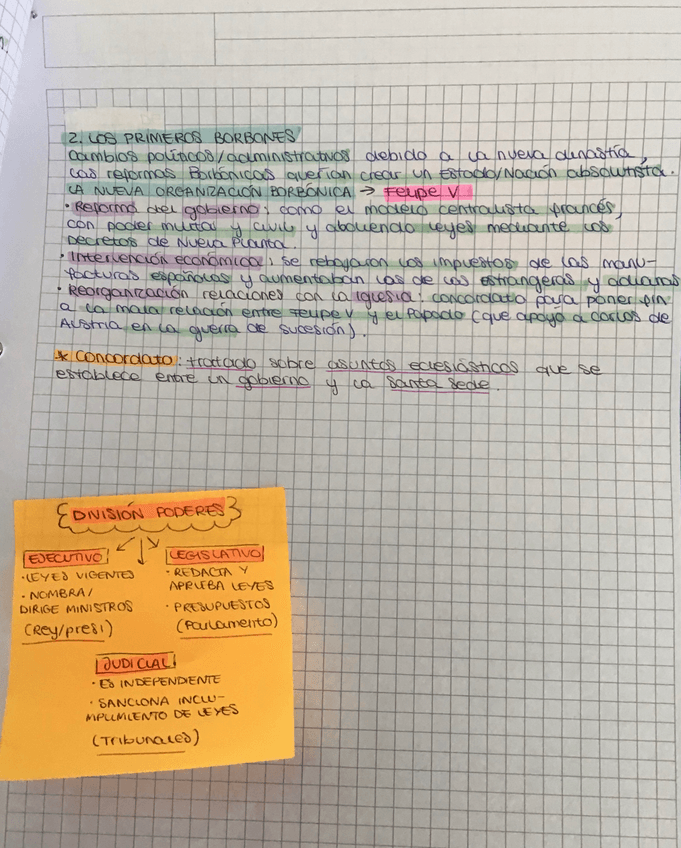 2. LOS PRIMEROS BORBONES
cambios políticos/administrativos debido a la nueva dinastía,
Las reformas Borbónicas querían crear un Estado/Nación absolutista.
LA NUEVA ORGANIZACIÓN BORBÓNICA → Felipe V
· Reforma del gobierno: como el modelo centralista francés,
con poder militar y civil y aboliendo leyes mediante los
Decretos de Nueva Planta.
· Intervención económica: se rebajaron los impuestos de las manu-
facturas españolas y aumentaban los de las extranjeras y aduanas
· Reorganización relaciones con la iglesia: concordato para poner fin
a la mala relación entre Felipe V y el Papado (que apoyó a Carlos de
Austria en la guerra de sucesión).
* Concordato: tratado sobre asuntos eclesiásticos que se
establece entre un gobierno y la Santa Sede.
DIVISIÓN PODERES
EJECUTIVO
· LEYES VIGENTES
· NOMBRA/
DIRIGE MINISTROS
(Rey/presi)
LEGISLATIVO
· REDACTA Y
APRUEBA LEYES
· PRESUPUESTOS
(Parlamento)
JUDICIAL
· ES INDEPENDIENTE
· SANCIONA INCLU-
MPLIMIENTO DE LEYES
(Tribunales)